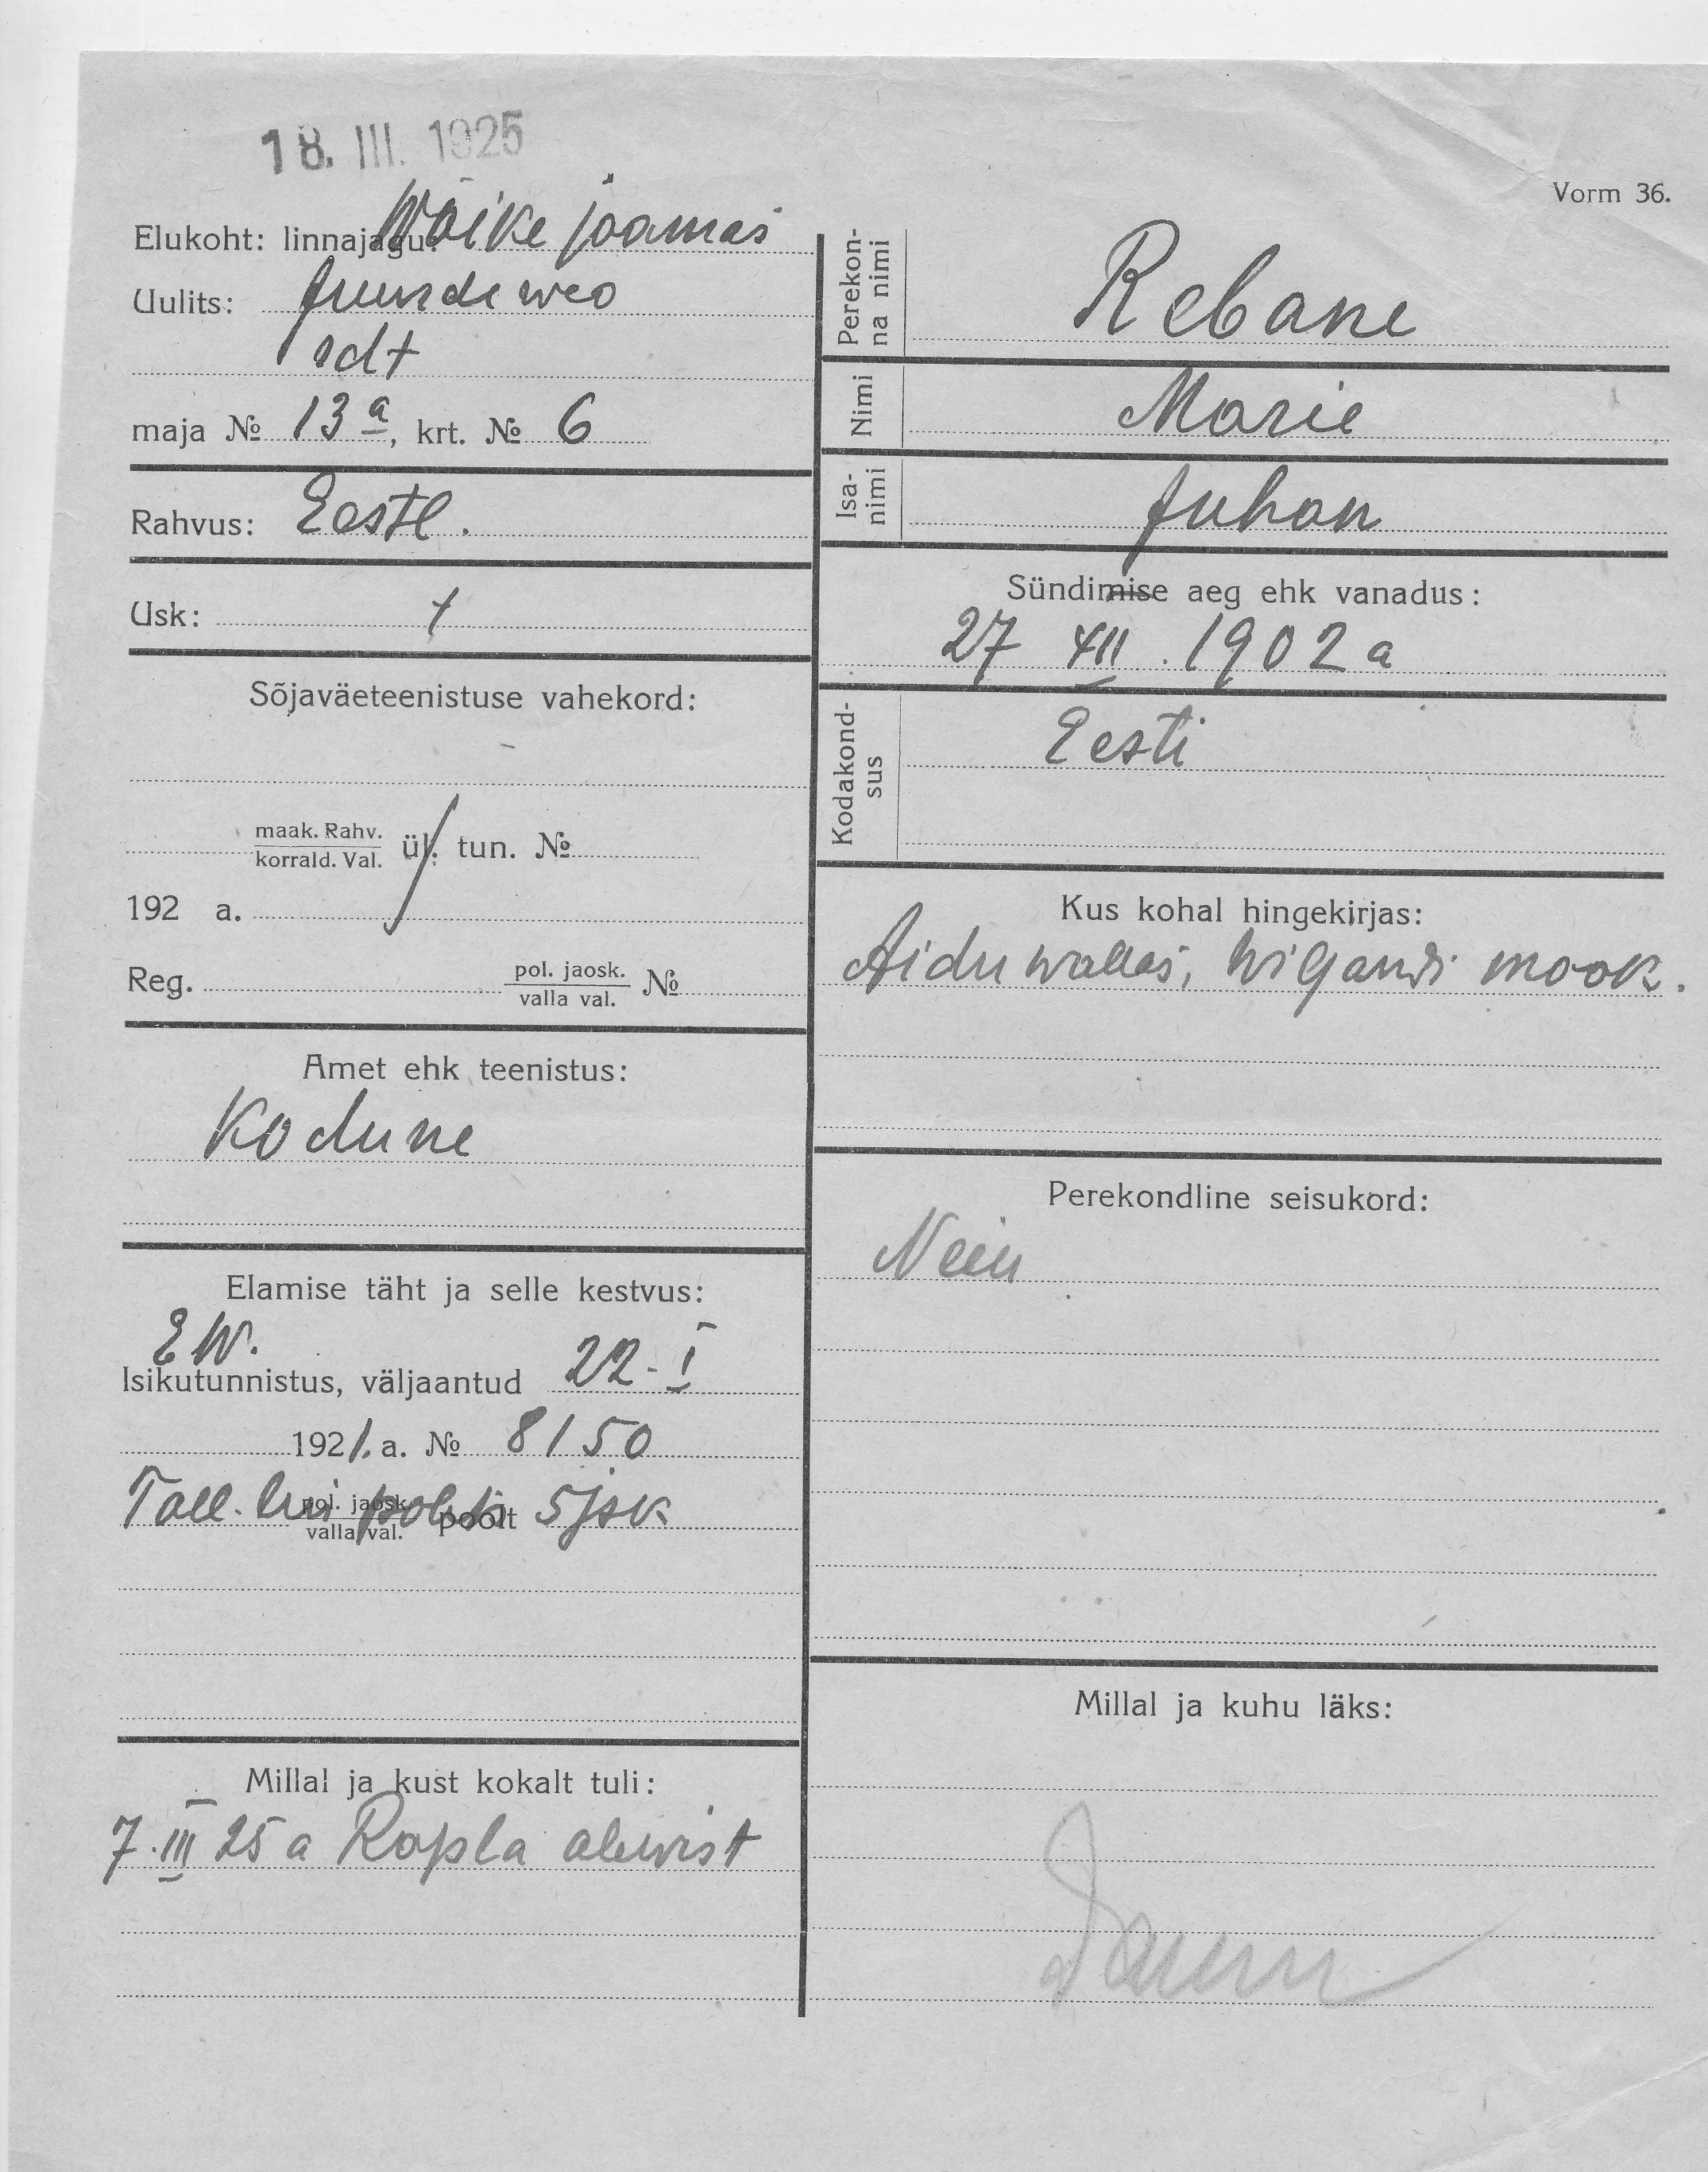 18. III. 1925
Vorm 36.
Elukoht: linnajagu: Wäike jaamas
Uulits: Juurdeweo
rdt
maja № 13 a, krt. № 6
Rahvus: Eestl.
Usk:
Sõjaväeteenistuse vahekord:
maak. Rahv.
korrald. Val. ül. tun. №
192 a.
Reg. pol. jaosk.
valla val. №
Amet ehk teenistus:
Kodune
Elamise täht ja selle kestvus:
E W.
Isikutunnistus, väljaantud 22 - I
1921. a. № 8150
Tall. lin polits 5 jsk
pol. jaosk.
valla val. poolt
Millal ja kust kokalt tuli:
7. III 25 a Rapla alewist
Perekon-
na nimi Rebane
Nimi Marie
Isa-
nimi Juhan
Sündimise aeg ehk vanadus:
27 XII. 1902 a
Kodakond-
sus Eesti
Kus kohal hingekirjas:
Aidu wallas, wiljandi maak.
Perekondline seisukord:
Neiu
Millal ja kuhu läks: